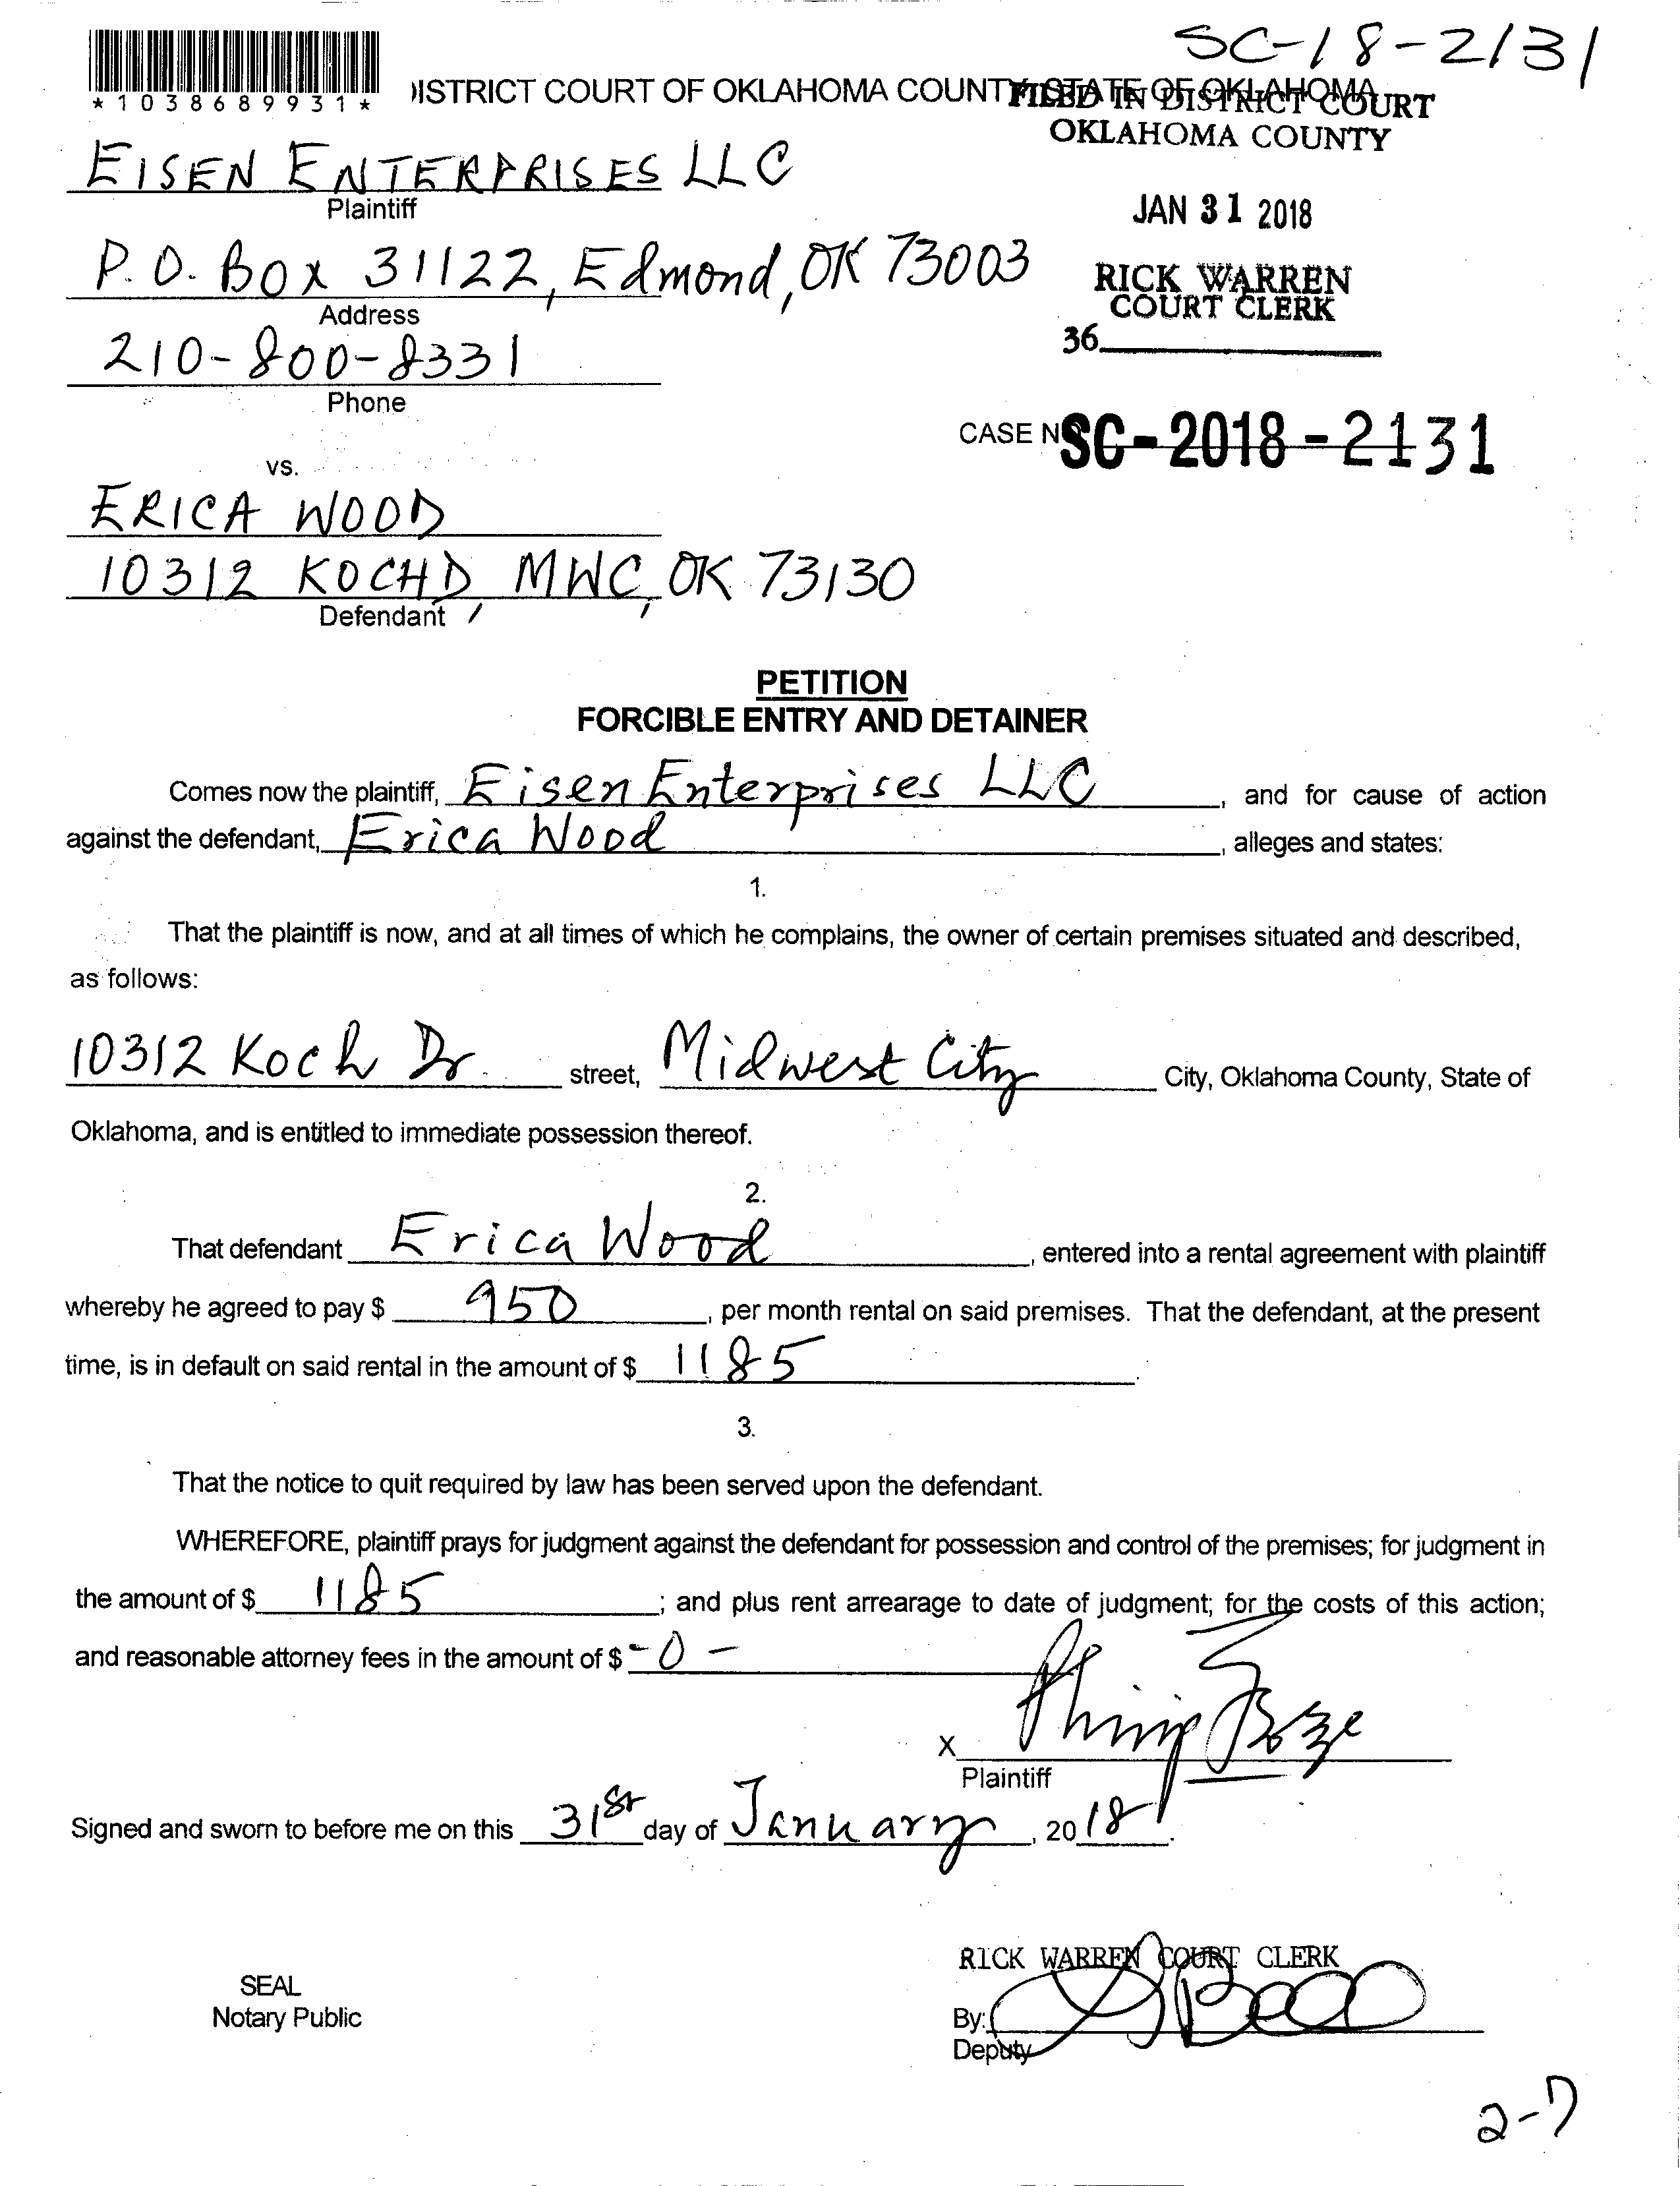 SC-18-2131
*1038689931*
DISTRICT COURT OF OKLAHOMA COUNTY, STATE OF OKLAHOMA
FILED IN DISTRICT COURT
OKLAHOMA COUNTY
EISEN ENTERPRISES LLC
Plaintiff
JAN 31 2018
P.O. Box 31122, Edmond, OK 73003
RICK WARREN
COURT CLERK
Address
36
210-800-8331
Phone
CASE NO. SC-2018-2131
vs.
ERICA WOOD
10312 KOCH D, MWC, OK 73130
Defendant
PETITION
FORCIBLE ENTRY AND DETAINER
Comes now the plaintiff, Eisen Enterprises LLC, and for cause of action
against the defendant, Erica Wood, alleges and states:
1.
That the plaintiff is now, and at all times of which he complains, the owner of certain premises situated and described,
as follows:
10312 Koch Dr. street, Midwest City City, Oklahoma County, State of
Oklahoma, and is entitled to immediate possession thereof.
2.
That defendant Erica Wood, entered into a rental agreement with plaintiff
whereby he agreed to pay $ 950, per month rental on said premises. That the defendant, at the present
time, is in default on said rental in the amount of $ 1185.
3.
That the notice to quit required by law has been served upon the defendant.
WHEREFORE, plaintiff prays for judgment against the defendant for possession and control of the premises; for judgment in
the amount of $ 1185; and plus rent arrearage to date of judgment; for the costs of this action;
and reasonable attorney fees in the amount of $ -0-
X
Plaintiff
Signed and sworn to before me on this 31st day of January, 2018.
RICK WARREN COURT CLERK
SEAL
Notary Public
By:
Deputy
2-7